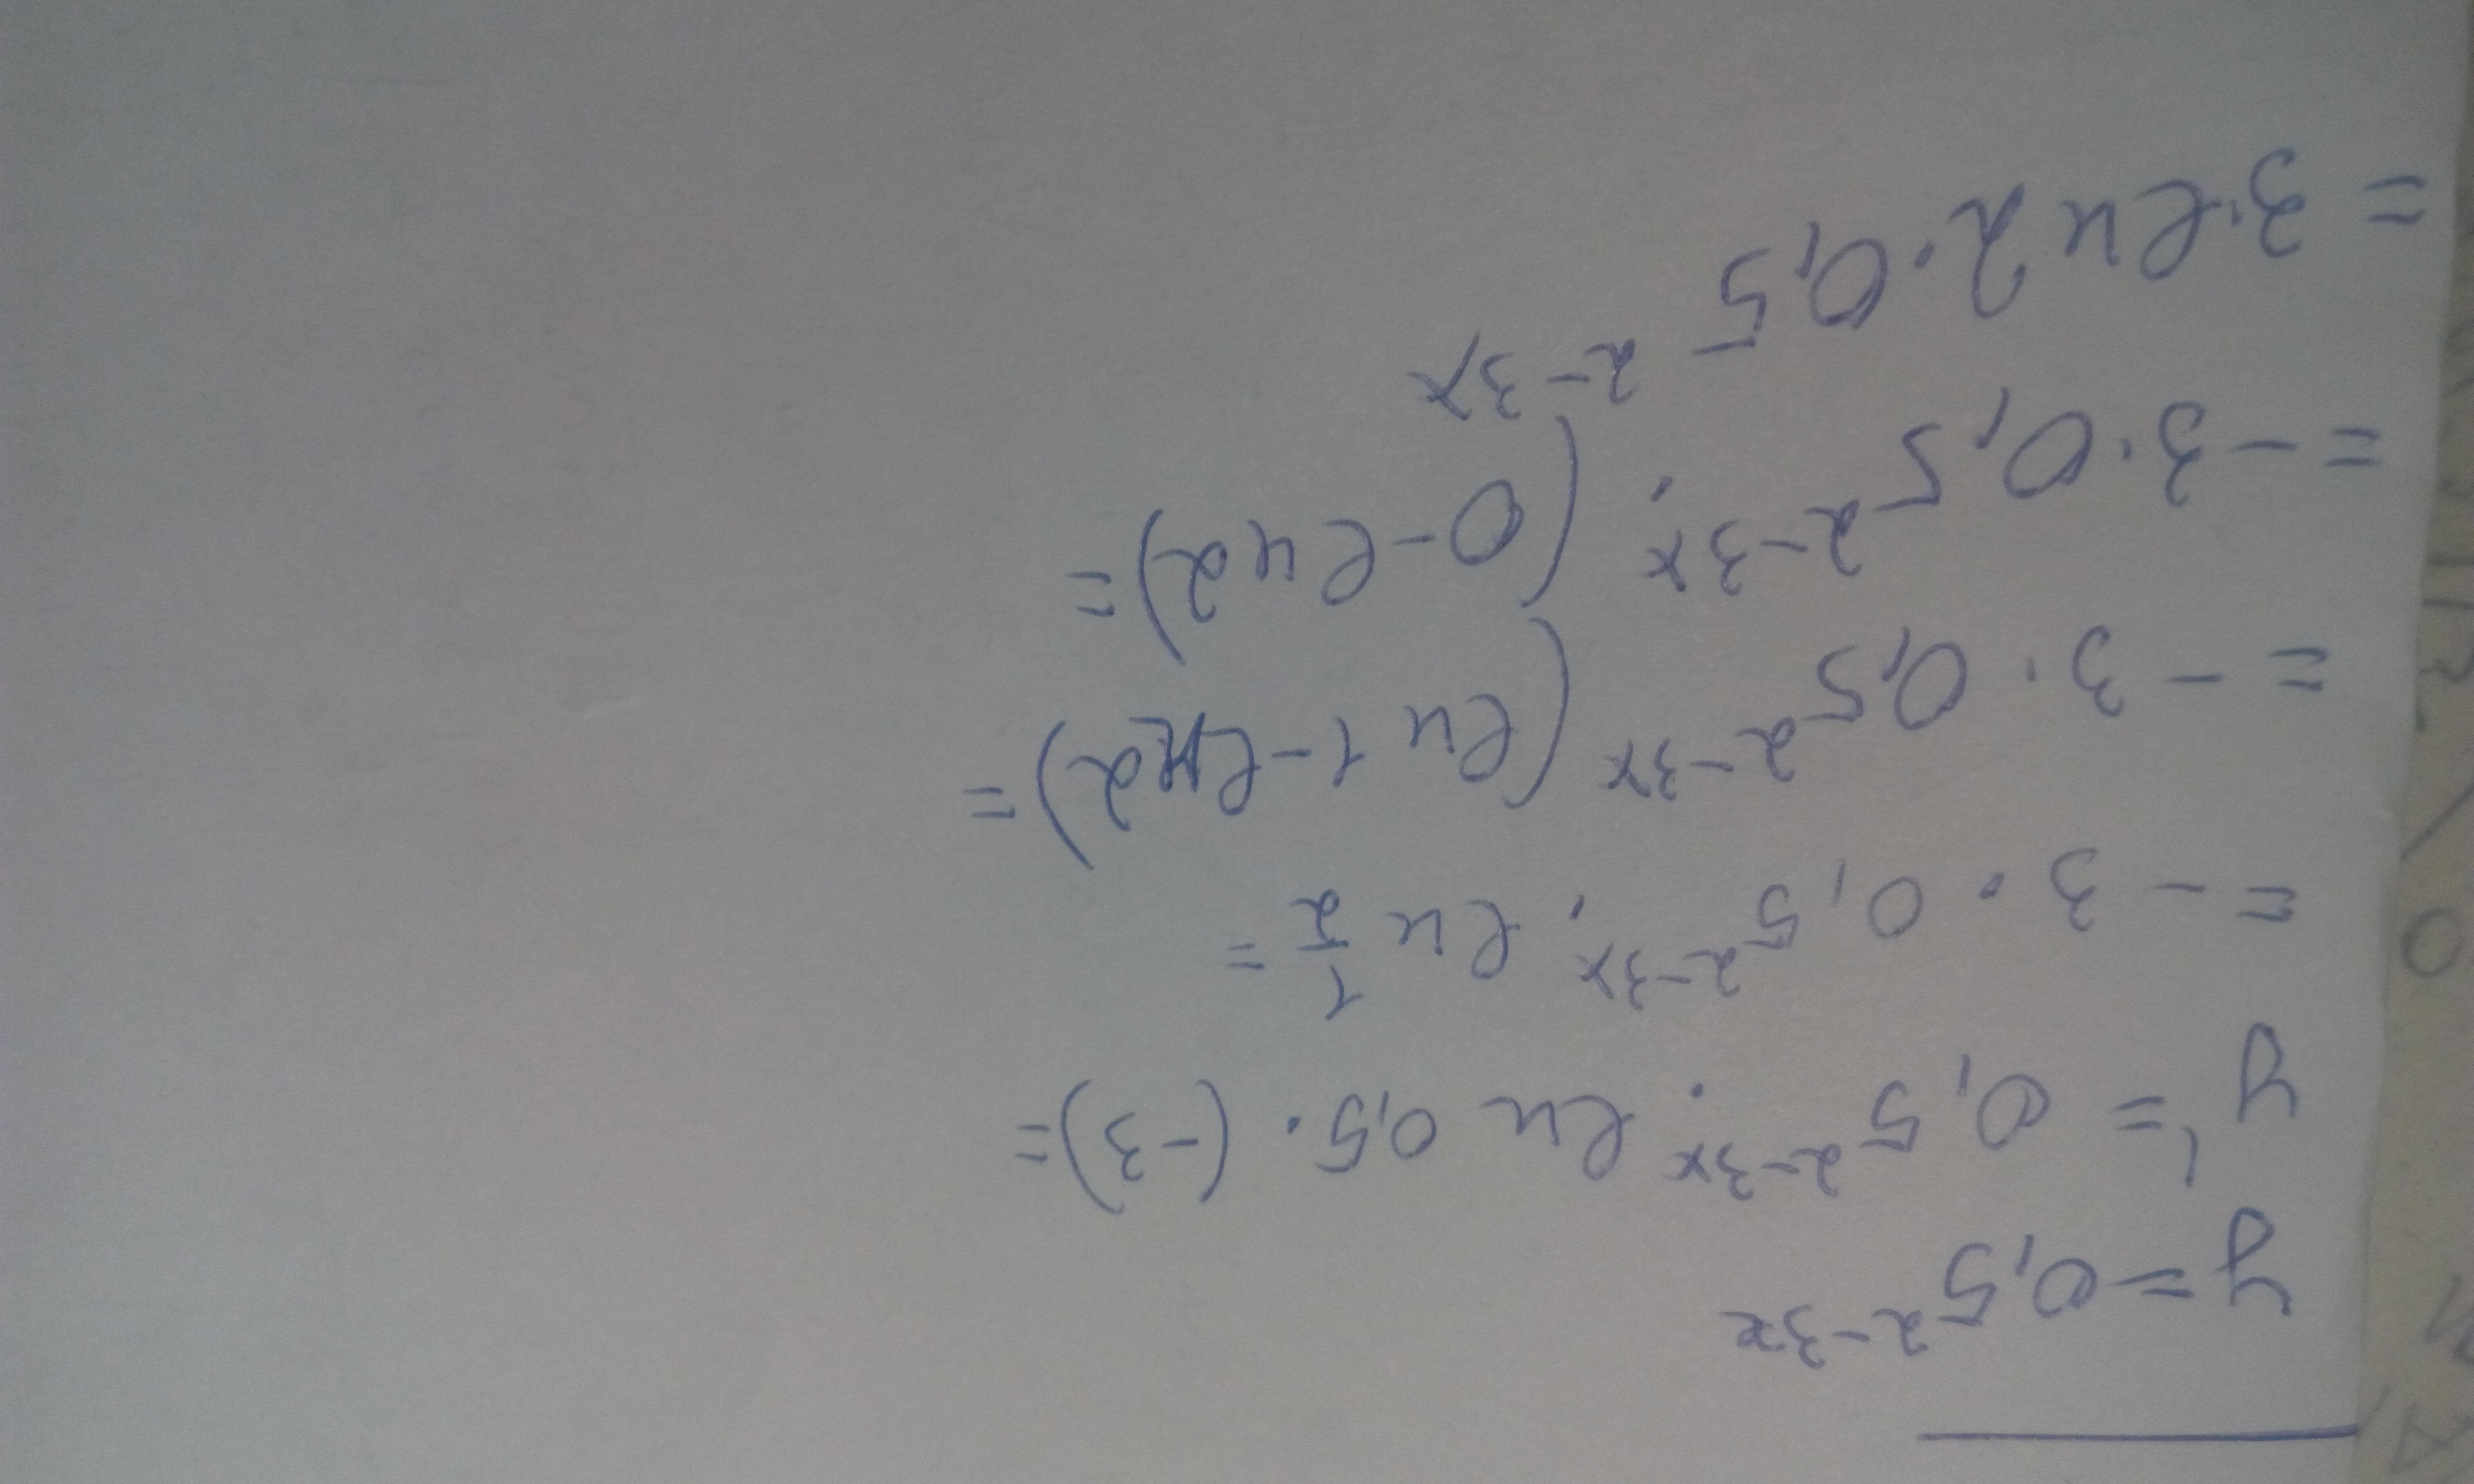 y = 0,5^{2-3x}
y' = 0,5^{2-3x} · ln 0,5 · (-3) =
= - 3 · 0,5^{2-3x} · ln \frac{1}{2} =
= - 3 · 0,5^{2-3x} (ln 1 - ln 2) =
= - 3 · 0,5^{2-3x} · (0 - ln 2) =
= 3 · ln 2 · 0,5^{2-3x}